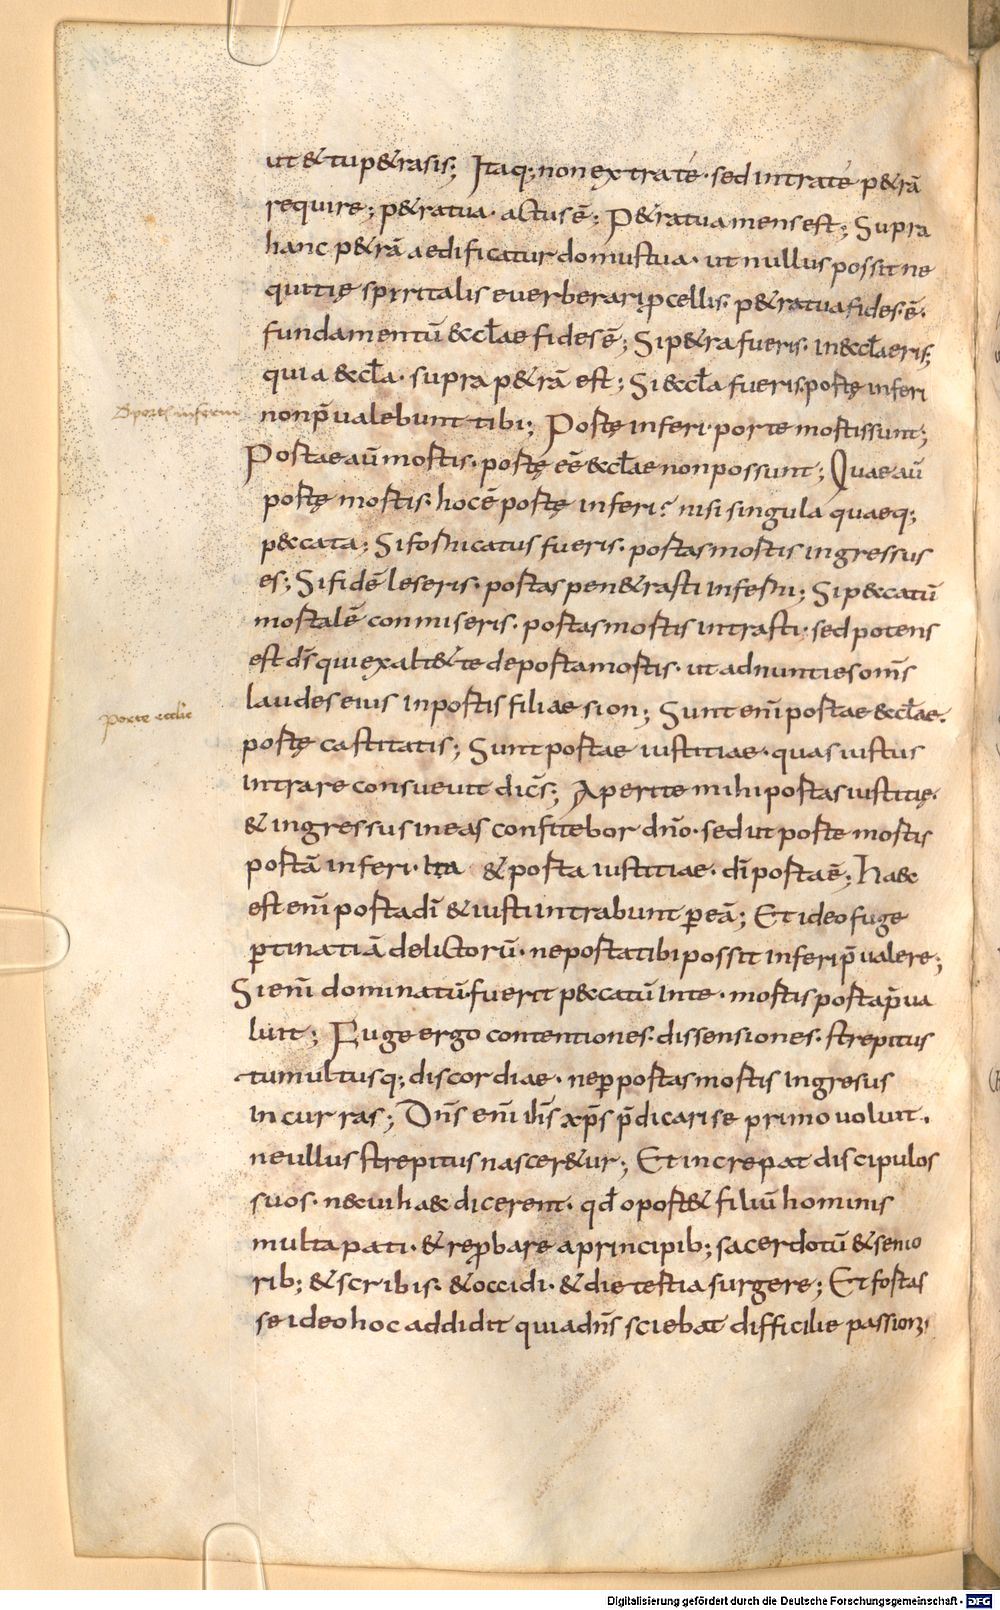 ut & tu p&ra sis; Itaq; non extra té· sed intra té p&rā
require; p&ra tua· actus ē; P&ra tua mens est; Supra
hanc p&rā aedificatur domus tua· ut nullus possit ne
quitię spiritalis euerberari pcellis· p&ra tua fides· ē·
fundamentū & eccłae fides ē; Si p&ra fueris· in eccła eris;
quia eccła· supra p&rā est; Si eccła fueris portę inferi
B porte inferni
non p̄ualebunt tibi; Portę inferi· porte mortis sunt;
Portae aū mortis· portę eē eccłae non possunt; Quae aū
portę mortis· hoc ē portę inferi? nisi singula quaeq;
peccata; Si fornicatus fueris· portas mortis ingressus
es; Si fidē leseris· portas pen&rasti inferni; Si peccatū
mortalē commiseris· portas mortis intrasti· sed potens
est d̄s qui exalt& te de porta mortis· ut adnunties om̄s
laudes eius in portis filiae sion; Sunt enī portae eccłae·
Porte ecclie
portę castitatis; Sunt portae iustitiae· quas iustus
intrare consueuit dicēs; Aperite mihi portas iustitię·
& ingressus in eas confitebor dn̄o· sed ut porte mortis
portā inferi· ita & porta iustitiae· dī porta ē; Haec
est enī porta dī & iusti intrabunt p eā; Et ideo fuge
ptinatiā delictorū· ne porta tibi possit inferi p̄ualere;
Si enī dominatū fuerit peccatū in te· mortis porta p̄ua
luit; Fuge ergo contentiones· dissensiones· strepitus
tumultusq; discordiae· ne p portas mortis ingresus
incurras; Dn̄s enī ih̄s xp̄s p̄dicari se primo uoluit·
ne ullus strepitus nascer&ur; Et increpat discipulos
suos· ne cui haec dicerent· qđ oport& filiū hominis
multa pati· & reprobare a principib; sacerdotū & senio
rib; & scribis· & occidi· & die tertia surgere; Et fortas
se ideo hoc addidit quia dn̄s sciebat difficilie passion;